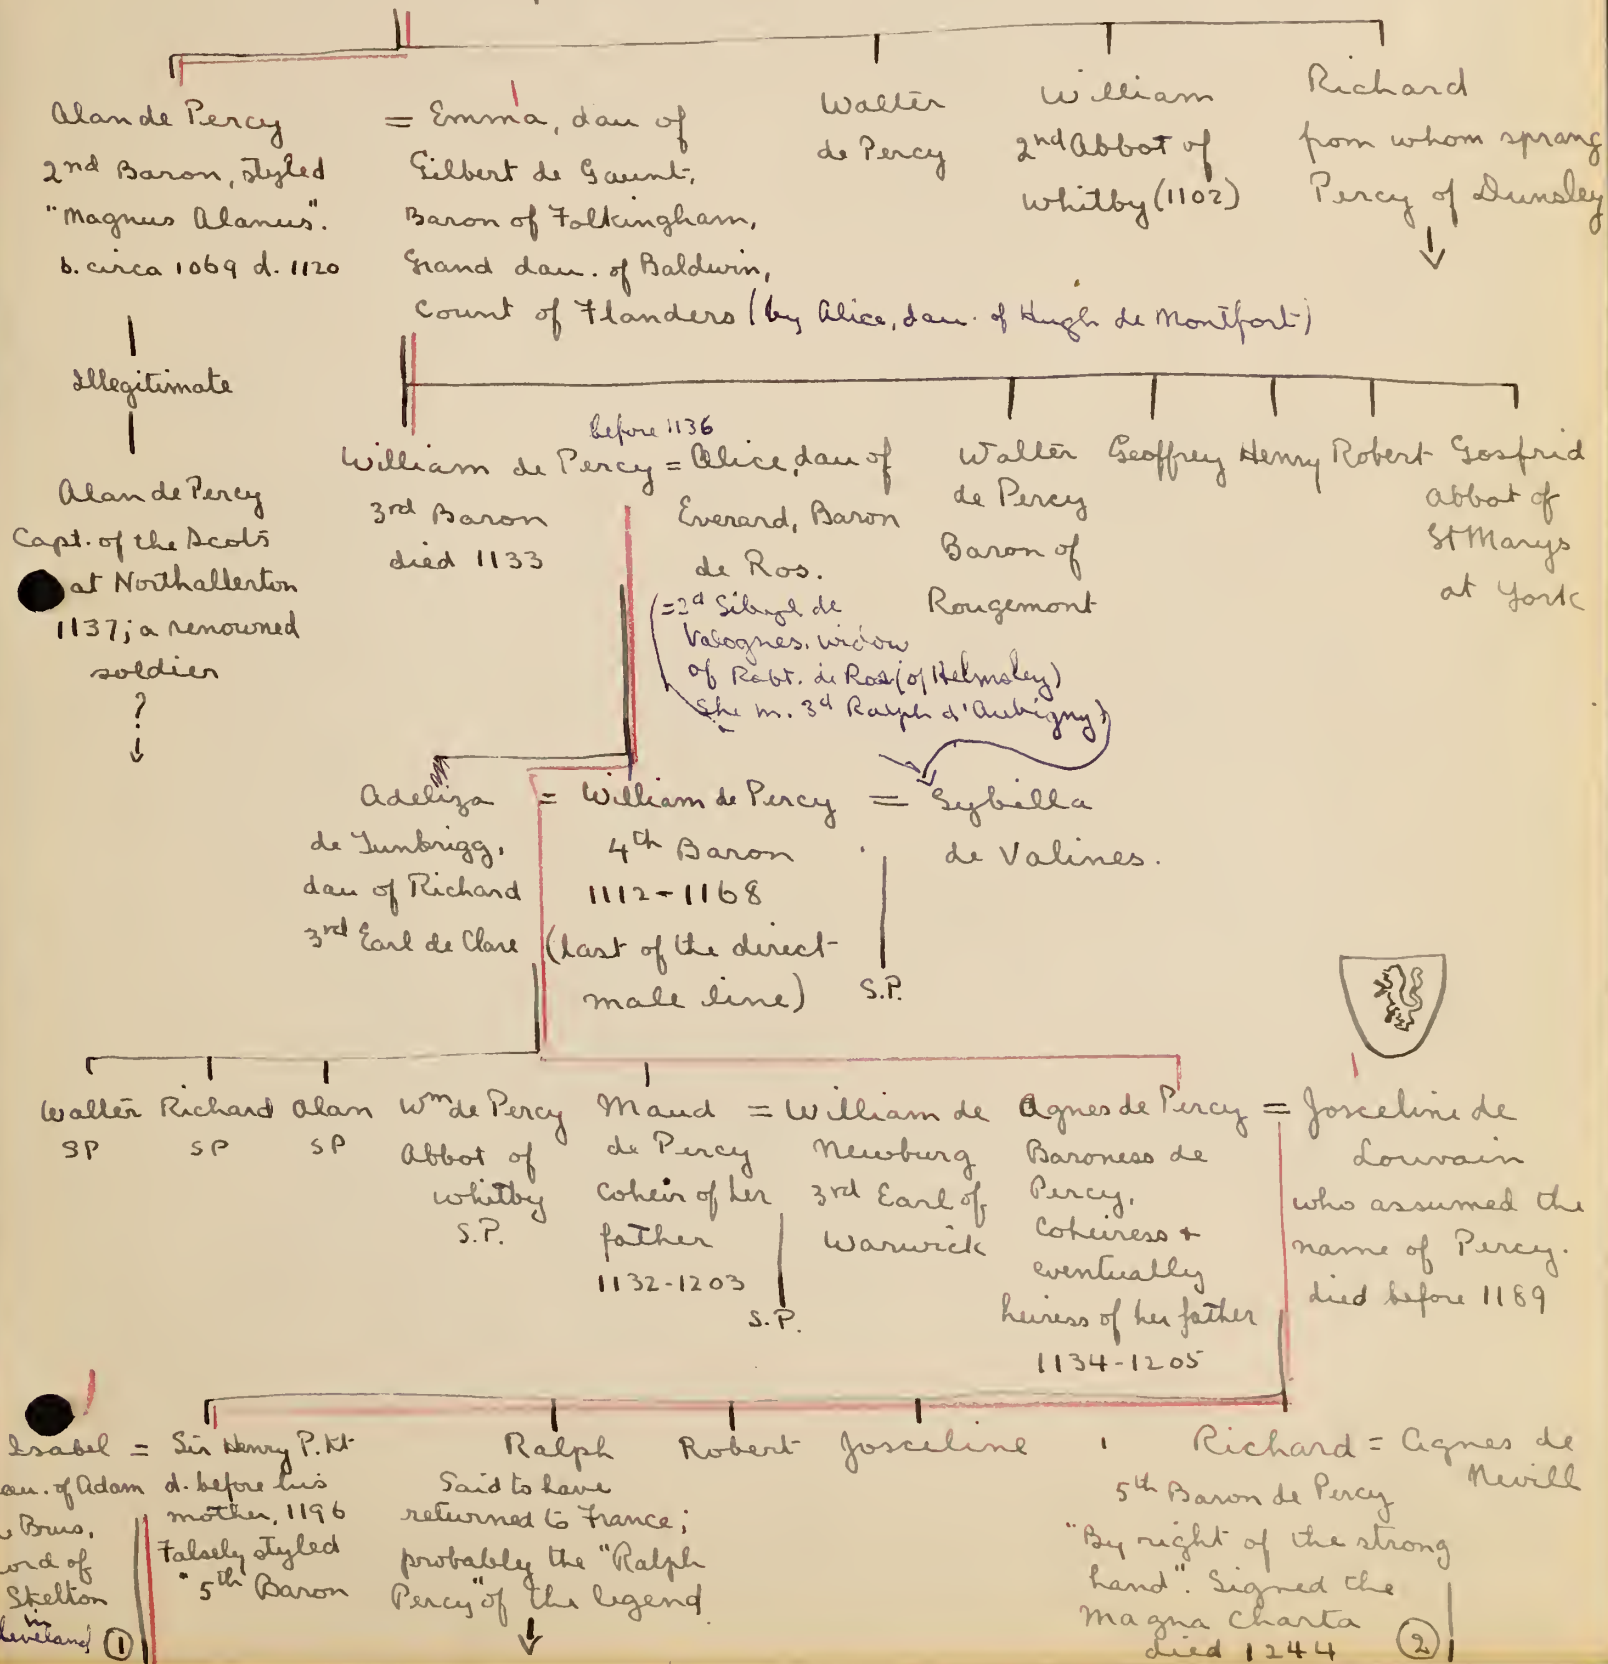 Alan de Percy
2nd Baron, styled
"Magnus Alanus".
b. circa 1069 d. 1120
= Emma, dau of
Gilbert de Gaunt,
Baron of Folkingham,
Grand dau. of Baldwin,
Count of Flanders (by Alice, dau. of Hugh de Montfort)
Walter
de Percy
William
2nd Abbot of
Whitby (1102)
Richard
from whom sprang
Percy of Dunsley
Illegitimate
Alan de Percy
Capt. of the Scots
at Northallerton
1137; a renowned
soldier
?
before 1136
William de Percy = Alice, dau of
3rd Baron
died 1133
Everard, Baron
de Ros.
(=2d Sibyl de
Valognes. widow
of Robt. de Ros (of Helmsley)
She m. 3d Ralph d'Aubigny)
Walter
de Percy
Baron of
Rougemont
Geoffrey
Henry
Robert
Gosfrid
Abbot of
St Marys
at York
Adeliza
de Tunbrigg,
dau of Richard
3rd Earl de Clare
= William de Percy =
4th Baron
1112-1168
(last of the direct
male line)
Sybilla
de Valines.
S.P.
Walter
SP
Richard
SP
Alan
SP
Wm de Percy
Abbot of
Whitby
S.P.
Maud
de Percy
Coheir of her
father
1132-1203
= William de
Newburg
3rd Earl of
Warwick
S.P.
Agnes de Percy =
Baroness de
Percy,
Coheiress +
eventually
heiress of her father
1134-1205
Josceline de
Louvain
who assumed the
name of Percy.
died before 1189
Isabel =
au. of Adam
Brus,
ord of
Skelton
in
leveland)
1
Sir Henry P. Kt
d. before his
mother, 1196
Falsely styled
"5th Baron
Ralph
Said to have
returned to France;
probably the "Ralph
Percy" of the legend
Robert
Josceline
Richard = Agnes de
Nevill
5th Baron de Percy
"By right of the strong
hand". Signed the
Magna Charta
died 1244
2